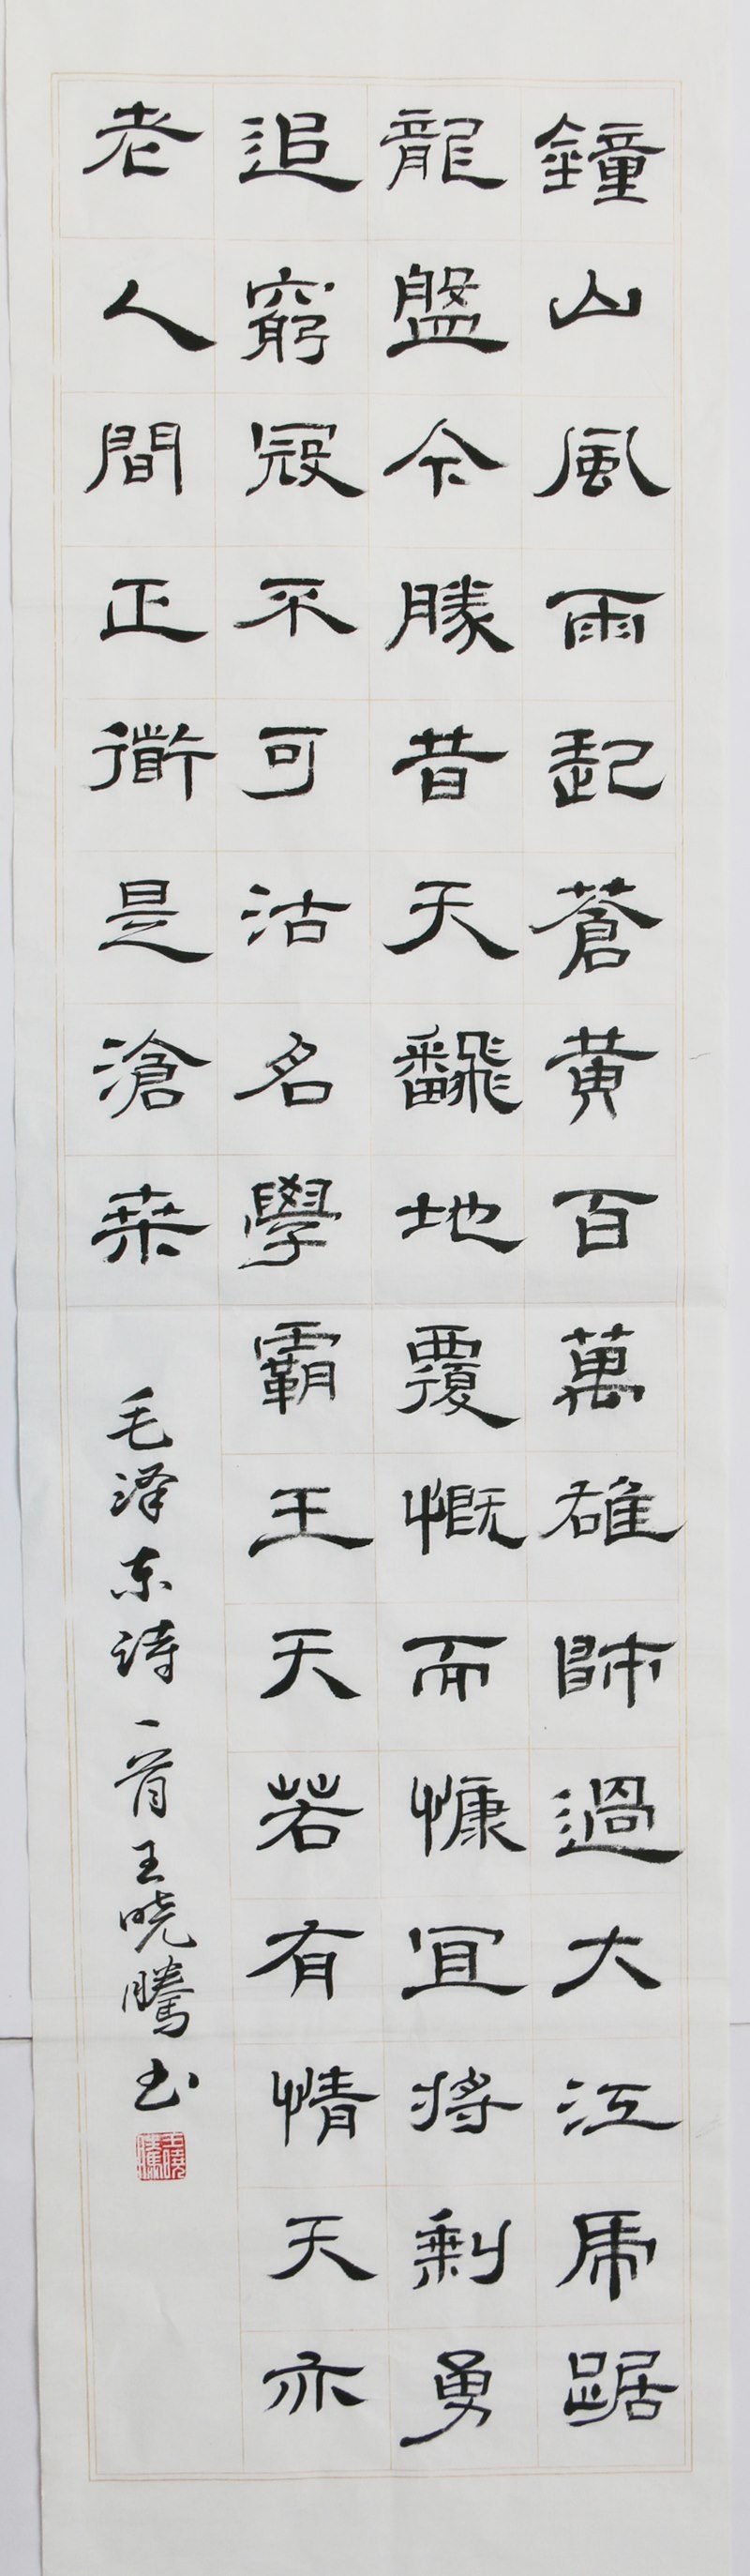 鐘山風雨起蒼黃百萬雄師過大江虎踞
龍盤今勝昔天飜地覆慨而慷宜將剩勇
追窮冦不可沽名學霸王天若有情天亦
老人間正衜是滄桒
毛泽东诗一首王晓騰书
王曉騰